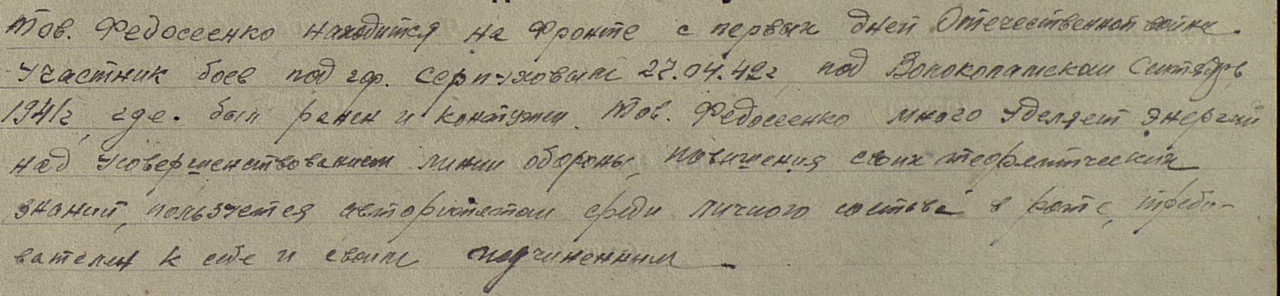 Тов. Федосеенко находится на фронте с первых дней Отечественной войны.
Участник боев под гор. Серпуховым 27.04.42г под Волоколамском Сентябрь
1941г где. был ранен и контужен. Тов. Федосеенко много уделяет энергии
над усовершенствованием линии обороны, повишения своих теоретических
знаний, пользуется авторитетом среди личного состава в роте, требо-
вателен к себе и своим подчиненным